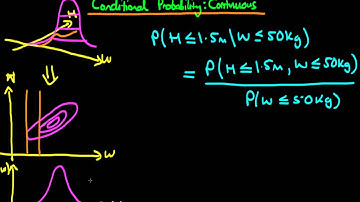 Conditional Probability: Continuous
H
W
P(H ≤ 1.5m | W ≤ 50kg)
= P(H ≤ 1.5m, W ≤ 50kg)
P(W ≤ 50kg)
H
W